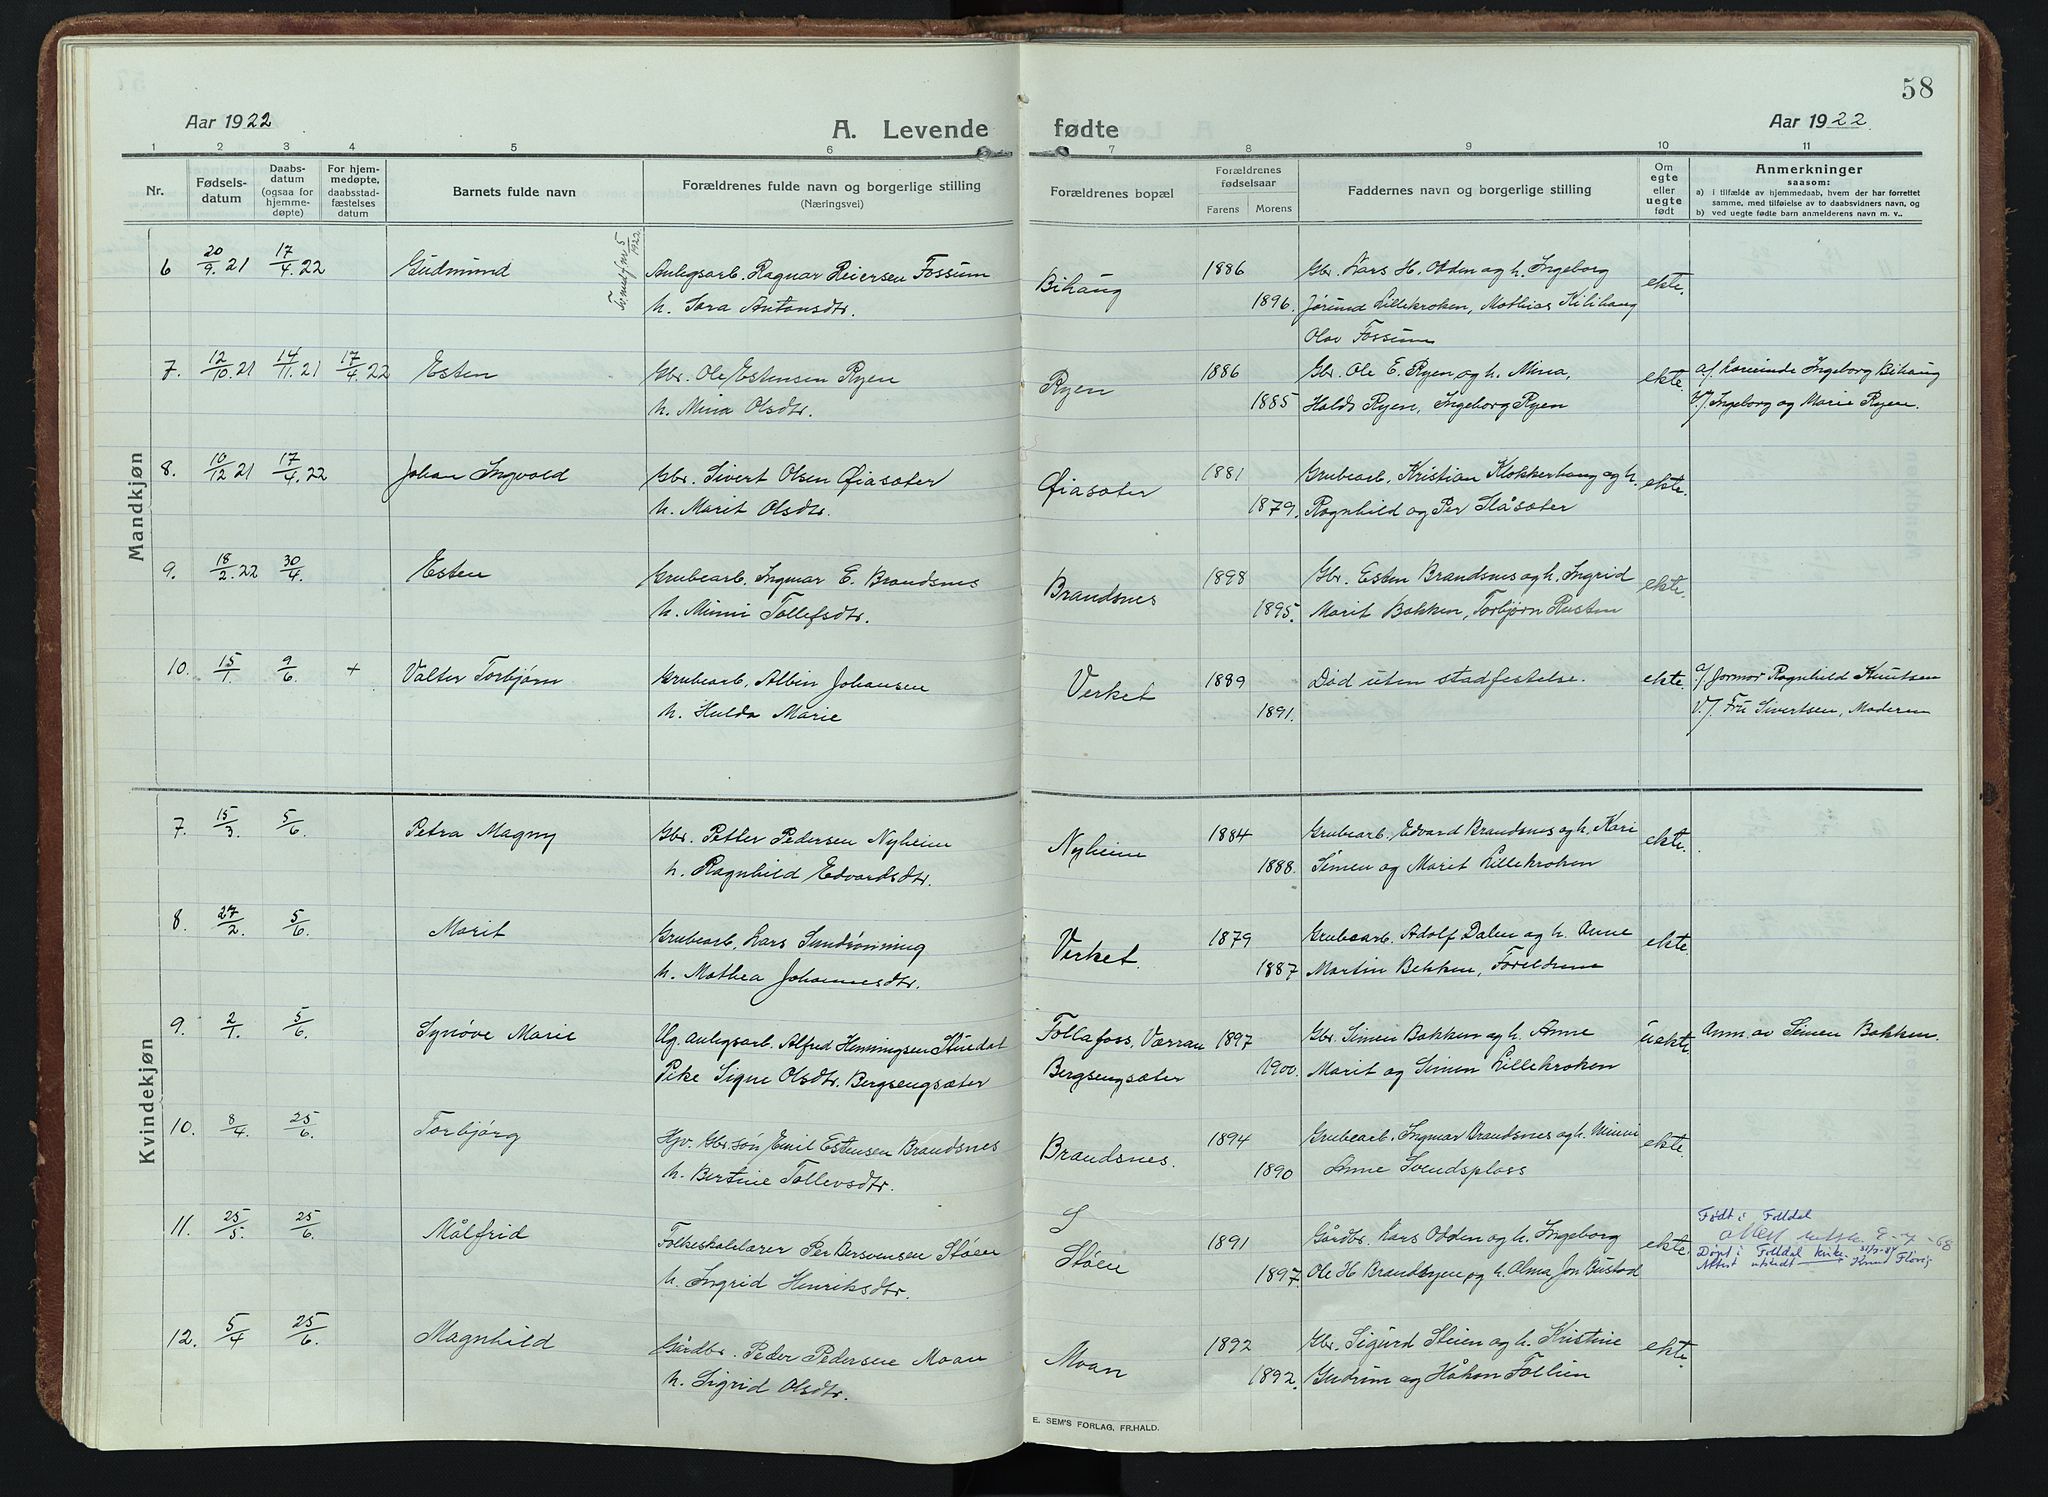 58
Aar 1922
A. Levende fødte
Aar 1922.
1 2 3 4 5 6 7 8 9 10 11
Nr.
Fødsels-
datum
Daabs-
datum
(ogsaa for
hjemme-
døpte)
For hjem-
medøpte,
daabsstad-
fæstelses
datum
Barnets fulde navn
Forældrenes fulde navn og borgerlige stilling
(Næringsvei)
Forældrenes bopæl
Forældrenes
fødselsaar
Farens Morens
Faddernes navn og borgerlige stilling
Om
egte
eller
uegte
født
Anmerkninger
saasom:
a) i tilfælde av hjemmedaab, hvem der har forrettet
samme, med tilføielse av to daabsvidners navn, og
b) ved uegte fødte barn anmelderens navn m. v..
Mandkjøn
6 20/9. 21 17/4. 22 Gudmund Anligsarb. Ragnar Reiersen Fossum Bihaug 1886 Gbr. Lars H. Odden og h. Ingeborg ekte.
h. Sara Antonsdtr. 1896. Jørund Lillekroken, Mathias Kilihaug
Olav Fossum
7. 12/10. 21 14/11. 21 17/4. 22 Esten Gbr. Ole Estensen Ryen Ryen 1886 Gbr. Ole E. Ryen og h. Mina, ekte. a/ Ingeborg Bihaug
h. Mina Olsdtr. 1885 Halds Ryen, Ingeborg Ryen V./ Ingeborg og Marie Ryen.
8. 10/12 21 17/4. 22 Johan Ingvald Gbr. Sivert Olsen Øiasæter Øiasæter 1881 Grubearb. Kristian Klokkerhaug og h. ekte.
h. Marit Olsdtr. 1879. Ragnhild og Per Slåsæter
9. 18/2. 22 30/4. Esten Grubearb. Ingmar E. Brandsnes Brandsnes 1898 Gbr. Esten Brandsnes og h. Ingrid ekte.
h. Mimi Tollefsdtr. 1895. Marit Bakken, Torbjørn Rusten
10. 15/1. 9/6. + Valter Torbjørn Grubearb. Albin Johansen Verket 1889 Død uten stadfestelse. ekte. a/ Jormor Ragnhild Knutsen
h. Hulda Marie 1891. V./ Fru Sivertsen, Moderen
Kvindekjøn
7. 15/3. 5/6. Petra Magny Gbr. Petter Pedersen Nyheim Nyheim 1884 Grubearb. Edvard Brandsnes og h. Kari ekte.
h. Ragnhild Edvardsdtr. 1888. Simen og Marit Lillekroken
8. 27/2. 5/6. Marit Grubearb. Lars Sundrønning Verket. 1879 Grubearb. Adolf Dalen og h. Anne ekte.
h. Mathea Johannesdtr. 1887 Martin Bekken, Foreldrene
9. 2/1. 5/6. Synøve Marie Ug. Anligsarb. Alfred Henningsen Follafoss, Værran 1897 Gbr. Simen Bakken og h. Anne uekte Anm. av Simen Bakken.
Pike Signe Olsdtr. Bergsengsæter Bergsengsæter 1900. Marit og Simen Lillekroken
10. 8/4. 25/6. Torbjørg Hjv. Gbr.søn Emil Estensen Brandsnes Brandsnes. 1894 Grubearb. Ingmar Brandsnes og h. Mimmi ekte.
h. Bertine Tollevsdtr. 1890 Anne Svendsplass
11. 25/5. 25/6. Målfrid Folkeskolelærer Per Bersvensen Støen S
Støen 1891 Gårdbr. Lars Odden og h. Ingeborg ekte Født i Folldal
h. Ingrid Henriksdtr. 1897 Ole H. Brandsyen og h. Olma Jon Bustad Døpt i Folldal kirke.
Attest utstedt
12. 5/4 25/6. Magnhild Gårdbr. Peder Pedersen Moan Moan 1892 Gbr. Sigurd Steien og h. Kristine ekte.
h. Sigrid Olsdtr. 1892. Gudrun og Håkon Follien
E. SEM'S FORLAG, FR.HALD.